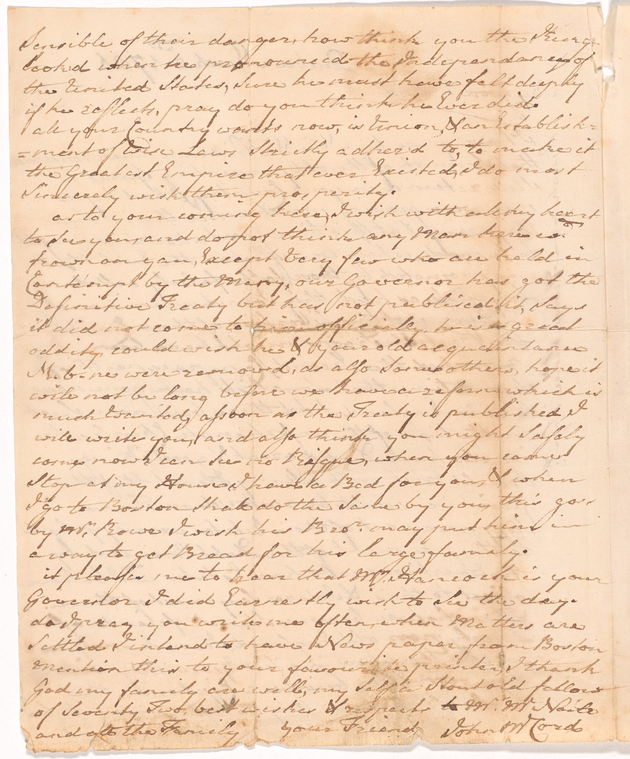 Sensible of their danger, how think you the King
Look'd when he pronounced the Independancy of
the United States, Sure he must have felt deeply
if he reflects, pray do you think he Ever did.
all your Country wants now, is Union, & an Establish=
=ment of Wise Laws Strictly adhered to, to make it
the Greatest Empire that ever Existed, I do most
Sincerely wish them prosperity.
as to your coming here, I wish with all my heart
to See you and do not think any Man here
frown on you, Except Very few who are held in
Contempt by the Many, our Governor has got the
Definitive Treaty but has not publised it, Says
it did not come to him officially, he is a great
oddity, could wish he & your old acquaintance
were removed, as also Some others, hope it
will not be long before we have a reform which is
much Wanted, as soon as the Treaty is published I
will write you, and also think you might Safely
come now I can See no Risque, when you came
Stop at my House, I have a Bed for you, & when
I go to Boston Shall do the Same by you, this goes
by Mr. Rowe I wish his Bro. may put him in
a way to get Bread for his large family.
it pleases me to hear that Mr. Hancock is your
Governor I did Earnestly wish to See the day.
do I pray you write me often, when Matters are
Settled I intend to have News paper from Boston
mention this to your favourite printer, I thank
God my family are well, my Self a Stout old fellow
of Seventy Two best wishes & respects to Mr. McNeile
and all the Family your Friend John McCord